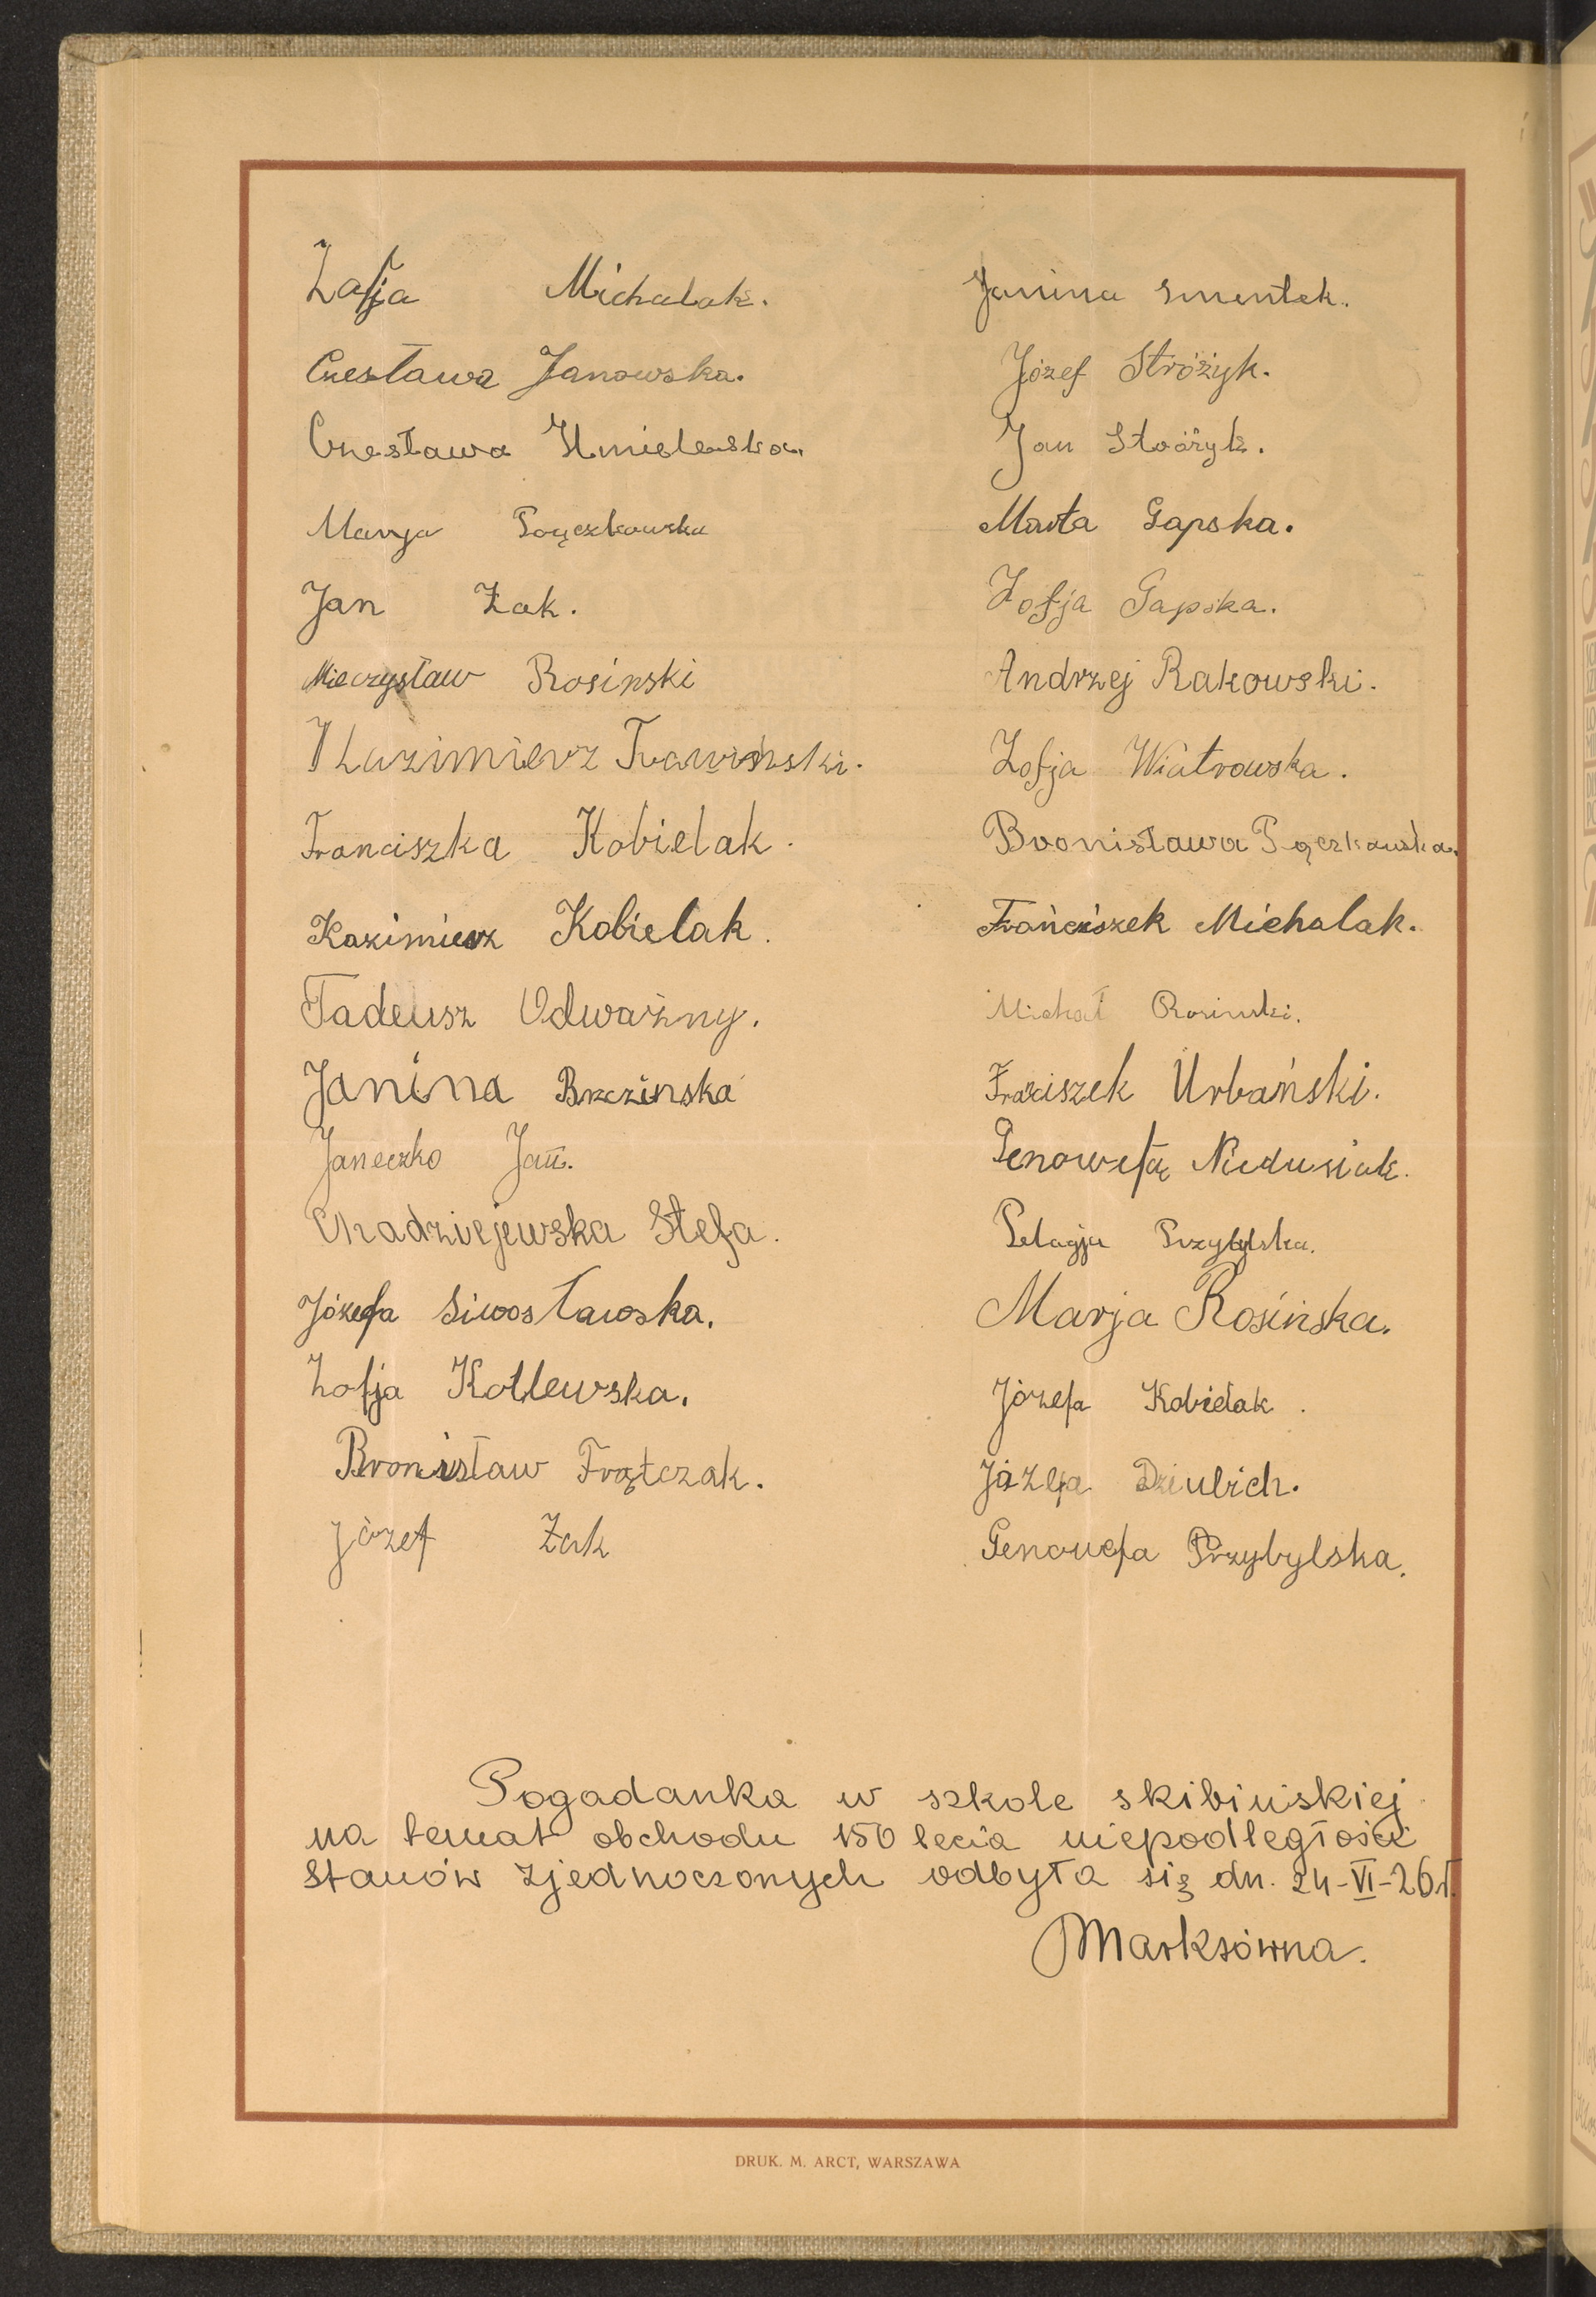 Zofja Michalak.
Czesława Janowska.
Czesława Hmielewska.
Marya Pączkowska
Jan Żak.
Mieczysław Rosinski
Kazimierz Trawiński.
Franciszka Kobielak.
Kazimierz Kobielak.
Tadeusz Odważny.
Janina Brzezinska
Janeczko Jan.
Chadziejewska Stefa.
Józefa Siwosławska.
Zofja Kotlewska.
Bronisław Frątczak.
Józef Żak
Janina Smentek.
Józef Stróżyk.
Jan Stróżyk.
Marta Gapska.
Zofja Gapska.
Andrzej Rakowski.
Zofja Wiatrowska.
Bronisława Pączkowska.
Frańciszek Michalak.
Michał Rosinski.
Franciszek Urbański.
Genowefa Niedusiak.
Pelagja Przybylska.
Marja Rosińska.
Józefa Kobielak.
Józefa Dziulich.
Genowefa Przybylska.
Pogadanka w szkole skibińskiej
na temat obchodu 150 lecia niepodległości
Stanów Zjednoczonych odbyła się dn. 24-VI-26 r.
Marksówna.
DRUK. M. ARCT, WARSZAWA